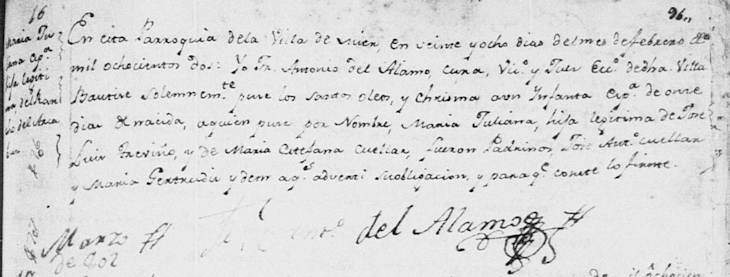 16
96,,
Maria Ju
liana Esp.ª
hija legiti
ma del Ran
cho del Aca
En esta Parroquia dela Villa de Mier, en veinte y ocho dias del mes de febrero de
mil ochocientos dos: Yo Fr. Antonio del Alamo, Cura, Vic.º y Juez Ecc.º de dha Villa
Bautise Solemnem.te puse los santos oleos, y Chrisma aun Infanta Esp.ª de onse
dias de nacida, aquien puse por Nombre, Maria Juliana, hija legitima de Jose
Luis Treviño, y de Maria Estefana Cuellar, fueron Padrinos, Jose Ant.º Cuellar
y Maria Gertrudis ydem aq.s adverti su obligacion, y para q.e conste lo firme.
Fr. Ant.º del Alamo
Marzo
de 802